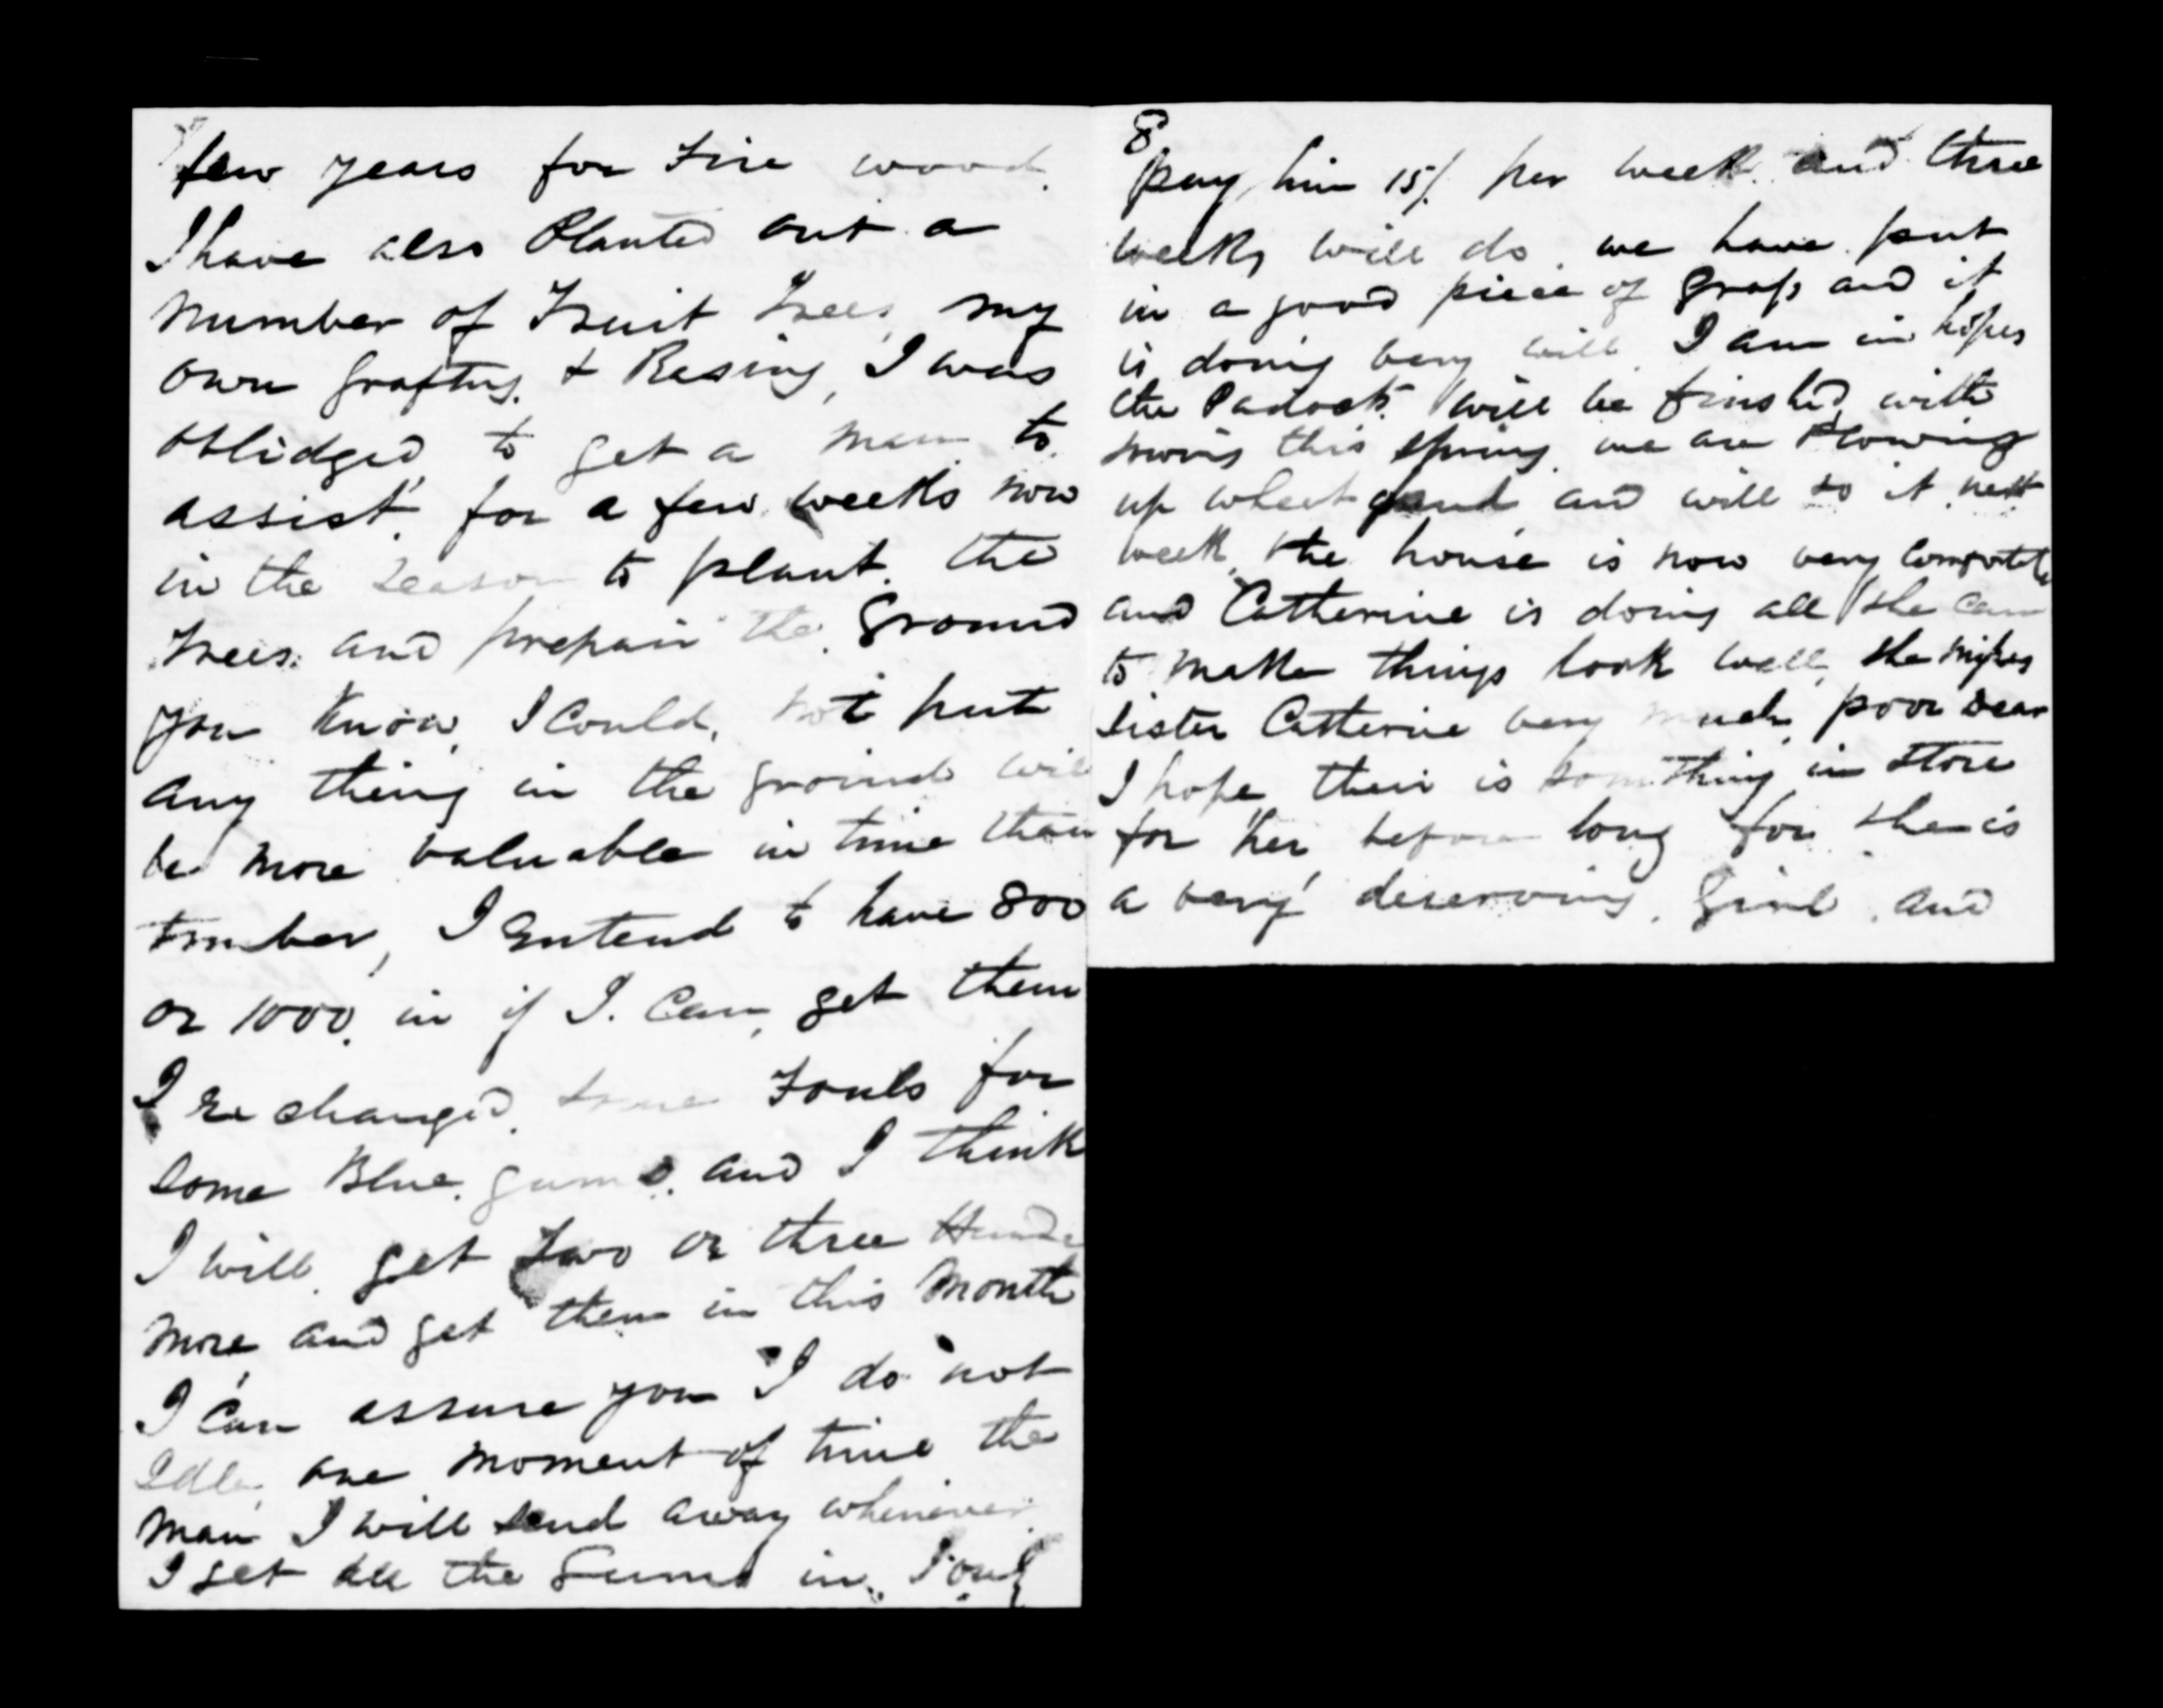 few years for Fire wood.
I have also Planted out a
number of Fruit Trees, my
own grafting. & Rasing, I was
oblidged to get a man to
assist. for a few weeks now
in the season to plant. the
Trees. and prepair the. Ground
you know, I Could, not put
any thing in the ground will
be more valuable in time than
timber, I Entend to have 800
or 1000. in if I. Can, get them
I Exchanged. some Fouls for
some Blue. gums. and I think
I will. get Two or three Hund
more, and get them in this Month
I Can assure you I do not
Idle, one moment of time the
man I will send away whenever
I get all the Gums in. I only
8
pay, him 15/. per week. and three
weeks will do. we have put
in a good piece of Grass and it
is doing very will I am in hopes
the Padock. will be finshed with
sowing this spring. we are Plowing
up wheet and will so it next
week, the house is now very
and Catherine is doing all she can
to make things look well, she
sister Catherine very much, poor Dear
I hope their is something in store
for her, before long for she is
a very deserving. Girl. and